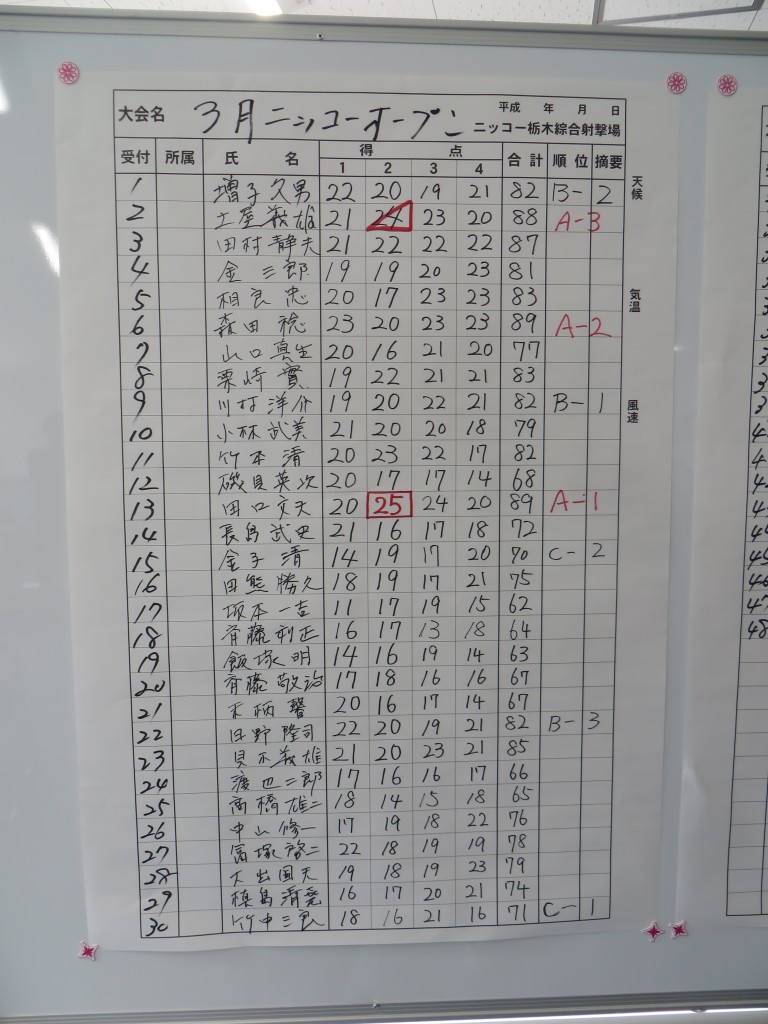 大会名 3月ニッコーオープン 平成 年 月 日
ニッコー栃木綜合射撃場
受付 所属 氏 名 得 点 合計 順位 摘要
1 2 3 4
天候
気温
風速
1 増子久男 22 20 19 21 82 B- 2
2 土屋義雄 21 24 23 20 88 A-3
3 田村静夫 21 22 22 22 87
4 金三郎 19 19 20 23 81
5 相良忠 20 17 23 23 83
6 森田稔 23 20 23 23 89 A-2
7 山口真生 20 16 21 20 77
8 栗崎實 19 22 21 21 83
9 川村洋介 19 20 22 21 82 B- 1
10 小林武美 21 20 20 18 79
11 竹本清 20 23 22 17 82
12 磯貝英次 20 17 17 14 68
13 田口文夫 20 25 24 20 89 A-1
14 長島武史 21 16 17 18 72
15 金子清 14 19 17 20 70 C- 2
16 田熊勝久 18 19 17 21 75
17 坂本一吉 11 17 19 15 62
18 斉藤利正 16 17 13 18 64
19 飯塚明 14 16 19 14 63
20 斉藤敬治 17 18 16 16 67
21 20 16 17 14 67
22 日野隆司 22 20 19 21 82 B- 3
23 義雄 21 20 23 21 85
24 渡辺二郎 17 16 16 17 66
25 高橋雄二 18 14 15 18 65
26 中山修一 17 19 18 22 76
27 冨塚啓二 22 18 19 19 78
28 大出国夫 19 18 19 23 79
29 槙島清堯 16 17 20 21 74
30 竹中三良 18 16 21 16 71 C- 1
47
48